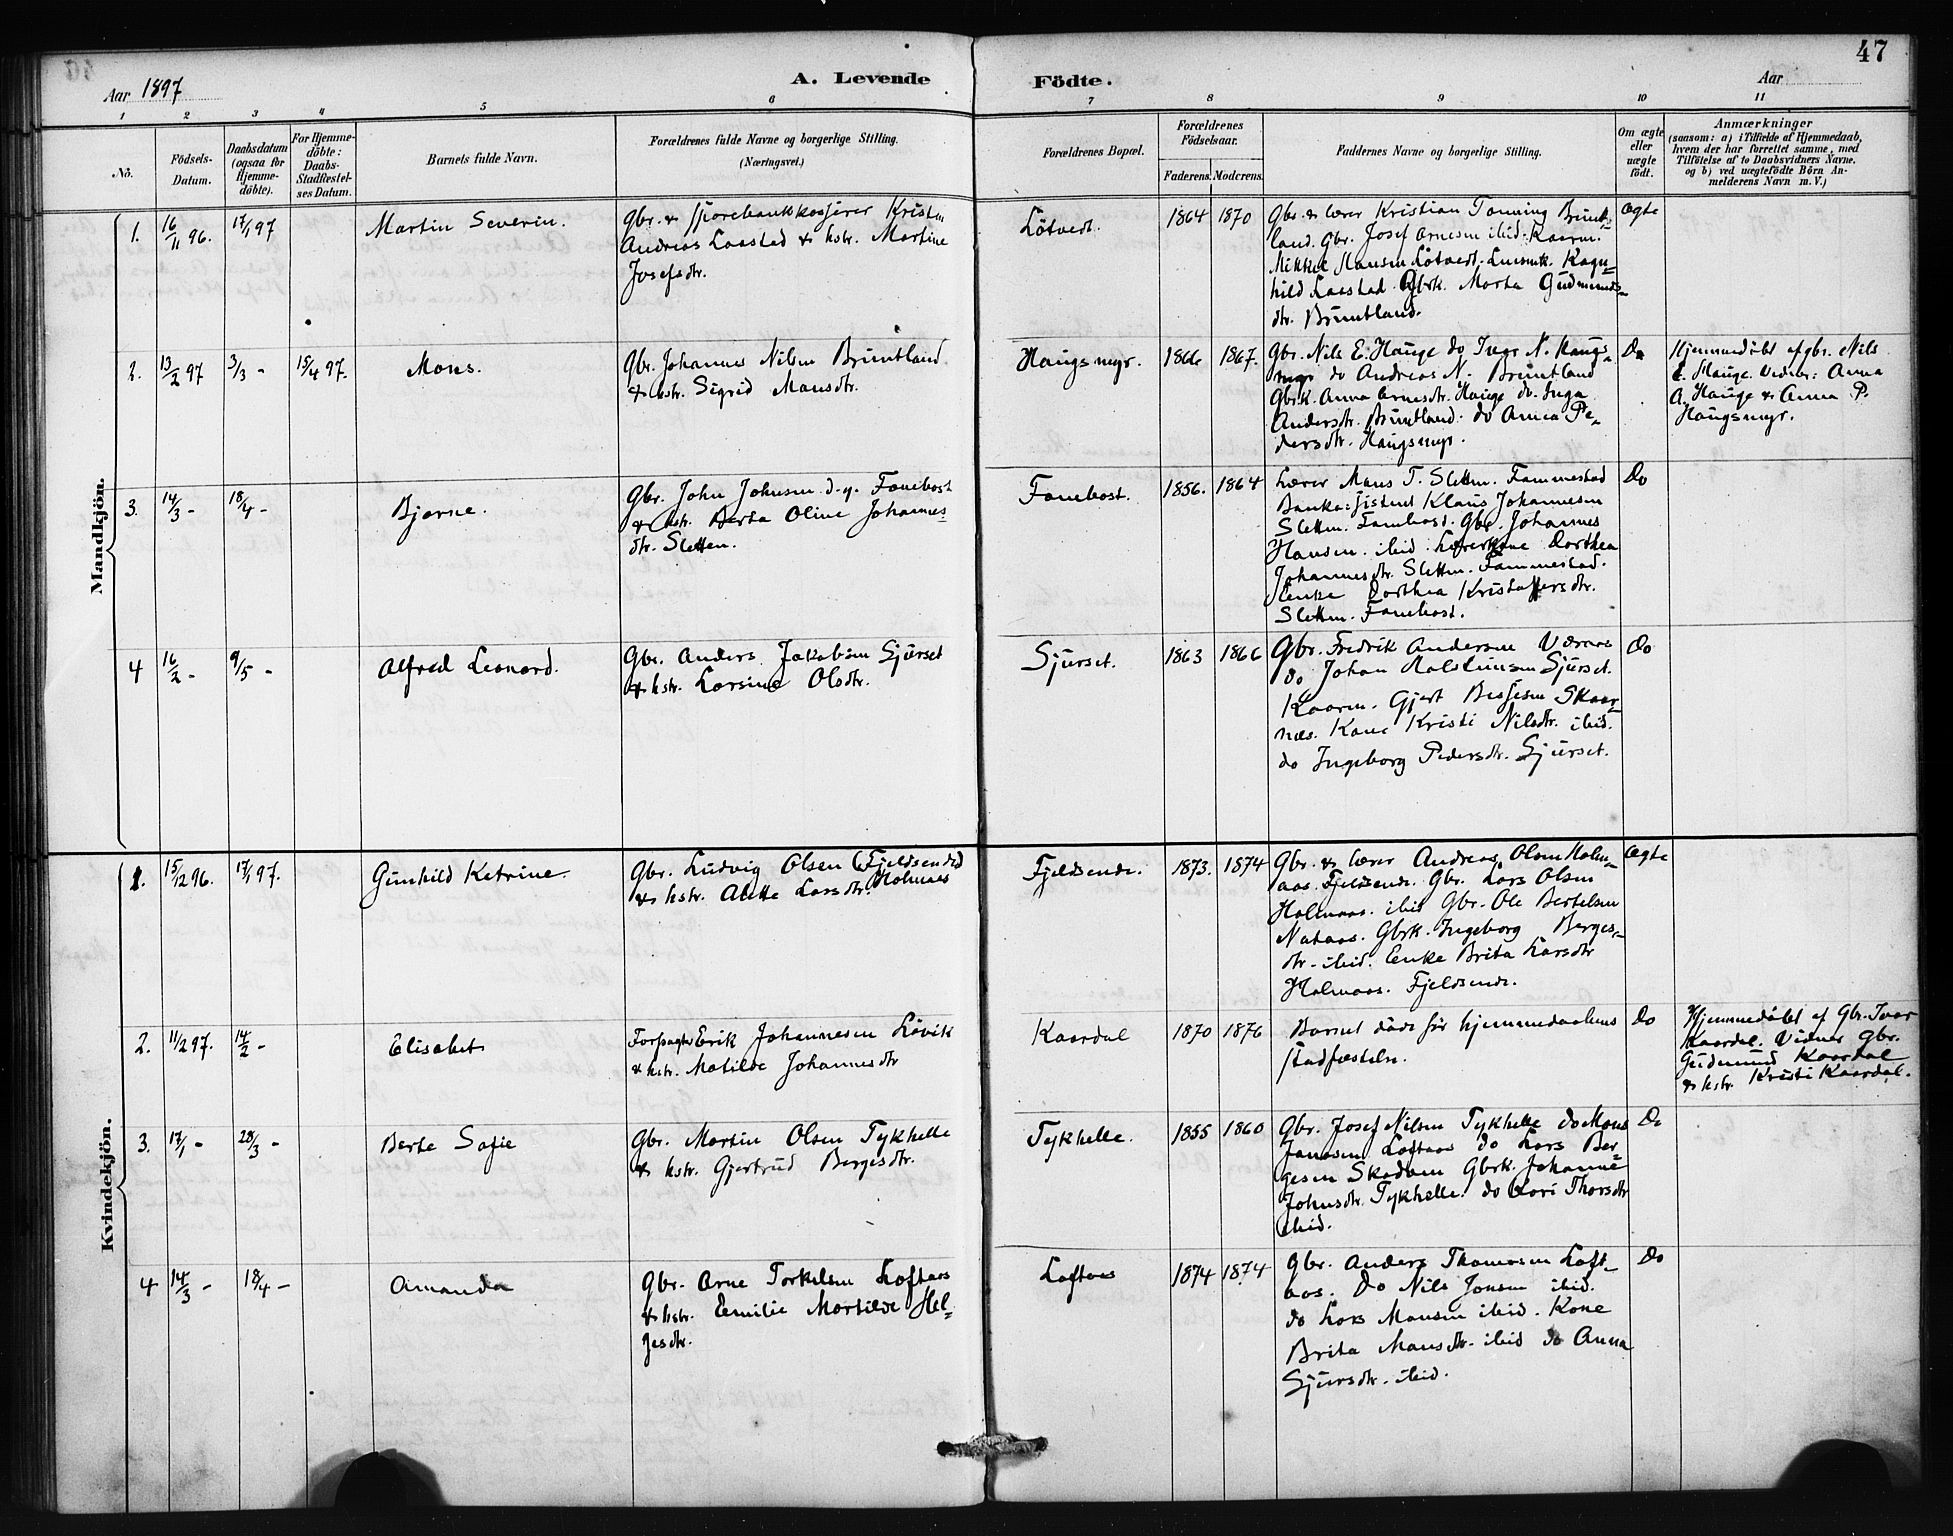 47
Aar 1897
A. Levende
Födte.
Aar
1 2 3 4 5 6 7 8 9 10 11
No.
Födsels-
Datum.
Daabsdatum
(ogsaa for
Hjemme-
döbte).
For Hjemme-
döbte:
Daabs-
Stadfæstel-
ses Datum.
Barnets fulde Navn.
Forældrenes fulde Navne og borgerlige Stilling.
(Næringsvei.)
Forældrenes Bopæl.
Forældrenes
Födselsaar.
Faderens. Moderens.
Faddernes Navne og borgerlige Stilling.
Om ægte
eller
uægte
födt.
Anmærkninger
(saasom: a) i Tilfælde af Hjemmedaab,
hvem der har forrettet samme, med
Tilföielse af to Daabsvidners Navne.
og b) ved uægtefödte Börn An-
melderens Navn m. V.)
Mandkjön.
1. 16/11 96. 17/1 97
Martin Severin.
Gbr. & sparebankkasserer Kristen
Andreas Laastad & hstr. Martine
Josefsdtr.
Lötvedt.
1864 1870
Gbr. & lærer Kristian Tonning Brunt-
land. Gbr. Josef Arnesen ibid. Kaarm.
Mikkel Hansen Lötvedt. Ragn-
hild Laastad Gbrk. Marta Gudmunds-
dtr. Bruntland.
Ægte
2. 13/2 97 3/3 - 15/4 97.
Mons.
Gbr. Johannes Nilsen Bruntland
& hstr. Sigrid Monsdtr.
Haugsmyr.
1866 1867.
Gbr. Nils E. Hauge do Ivar N. Haugs-
myr do Andreas N. Bruntland
Gbrk. Anna Arnesdtr. Hauge do. Inga
Andersdtr. Bruntland. do Anna Pe-
dersdtr. Haugsmyr.
Do
Hjemmedöbt af gbr. Nils
E. Hauge. Vidner: Anna
A. Hauge & Anna P.
Haugsmyr.
3. 14/3 - 18/4 -
Bjarne.
Gbr. John Johnsen d.y. Fanebost
& hstr. Berta Oline Johannes-
dtr. Sletten.
Fanebost.
1856. 1864
Lærer Mons T. Sletten. Fammestad
Klaus Johannesen
Sletten. Fanebost. Gbr. Johannes
Hansen. ibid. Lærerkone Dorthea
Johannesdtr. Sletten. Fammestad.
Enke Dorthea Kristoffersdtr.
Sletten. Fanebost.
Do
4 16/2 - 9/5 -
Alfred Leonard.
Gbr. Anders Jakobsen Sjurset
& hstr. Larsine Olsdtr.
Sjurset.
1863 1866
Gbr. Fredrik Andersen Væraas
do Johan Rasmussen Sjurset.
Kaarm. Gjert Bessesen Skaar-
næs. Kone Kristi Nilsdtr. ibid.
do Ingeborg Pedersdtr. Sjurset.
Do
Kvindekjön.
1. 15/12 96. 17/1 97.
Gunhild Katrine.
Gbr. Ludvig Olsen (Fjeldsende)
& hstr. Alette Larsdtr. Holmaas
Fjeldsende.
1873. 1874
Gbr. & lærer Andreas Olsen Holm-
aas. Fjeldsende. Gbr. Lars Olsen
Holmaas. ibid Gbr. Ole Bertelsen
Nataas. Gbrk. Ingeborg Berges-
dtr. ibid. Enke Brita Larsdtr
Holmaas. Fjeldsende.
Ægte
2. 11/2 97. 14/2 -
Elisabet
Forpagter Erik Johannesen Lövik
& hstr. Matilde Johannesdtr
Kaardal
1870 1876
Barnet döde för hjemmedaabens
stadfæstelse.
Do
Hjemmedöbt af Gbr. Ivar
Kaardal. Vidner Gbr.
Gudmund Kaardal
& hstr. Kristi Kaardal.
3. 17/1 - 28/3 -
Berte Sofie
Gbr. Martin Olsen Tykhelle
& hstr. Gjertrud Bergesdtr.
Tykhelle.
1855 1860
Gbr. Josef Nilsen Tykhelle do Mons
Jonasen Loftaas do Lars Ber-
gesen Skodven Gbrk. Johanne
Johnsdtr. Tykhelle. do Kari Thorsdtr
ibid.
Do
4 14/3 - 18/4 -
Amanda
Gbr. Arne Torkelsen Loftaas
& hstr. Emilie Martilde Hel-
gesdtr.
Loftaas
1874 1874
Gbr. Anders Thomasen Loft-
aas. Do Nils Jonsen ibid.
do Lars Monsen ibid. Kone
Brita Monsdtr. ibid do Anna
Sjursdtr. ibid.
Do